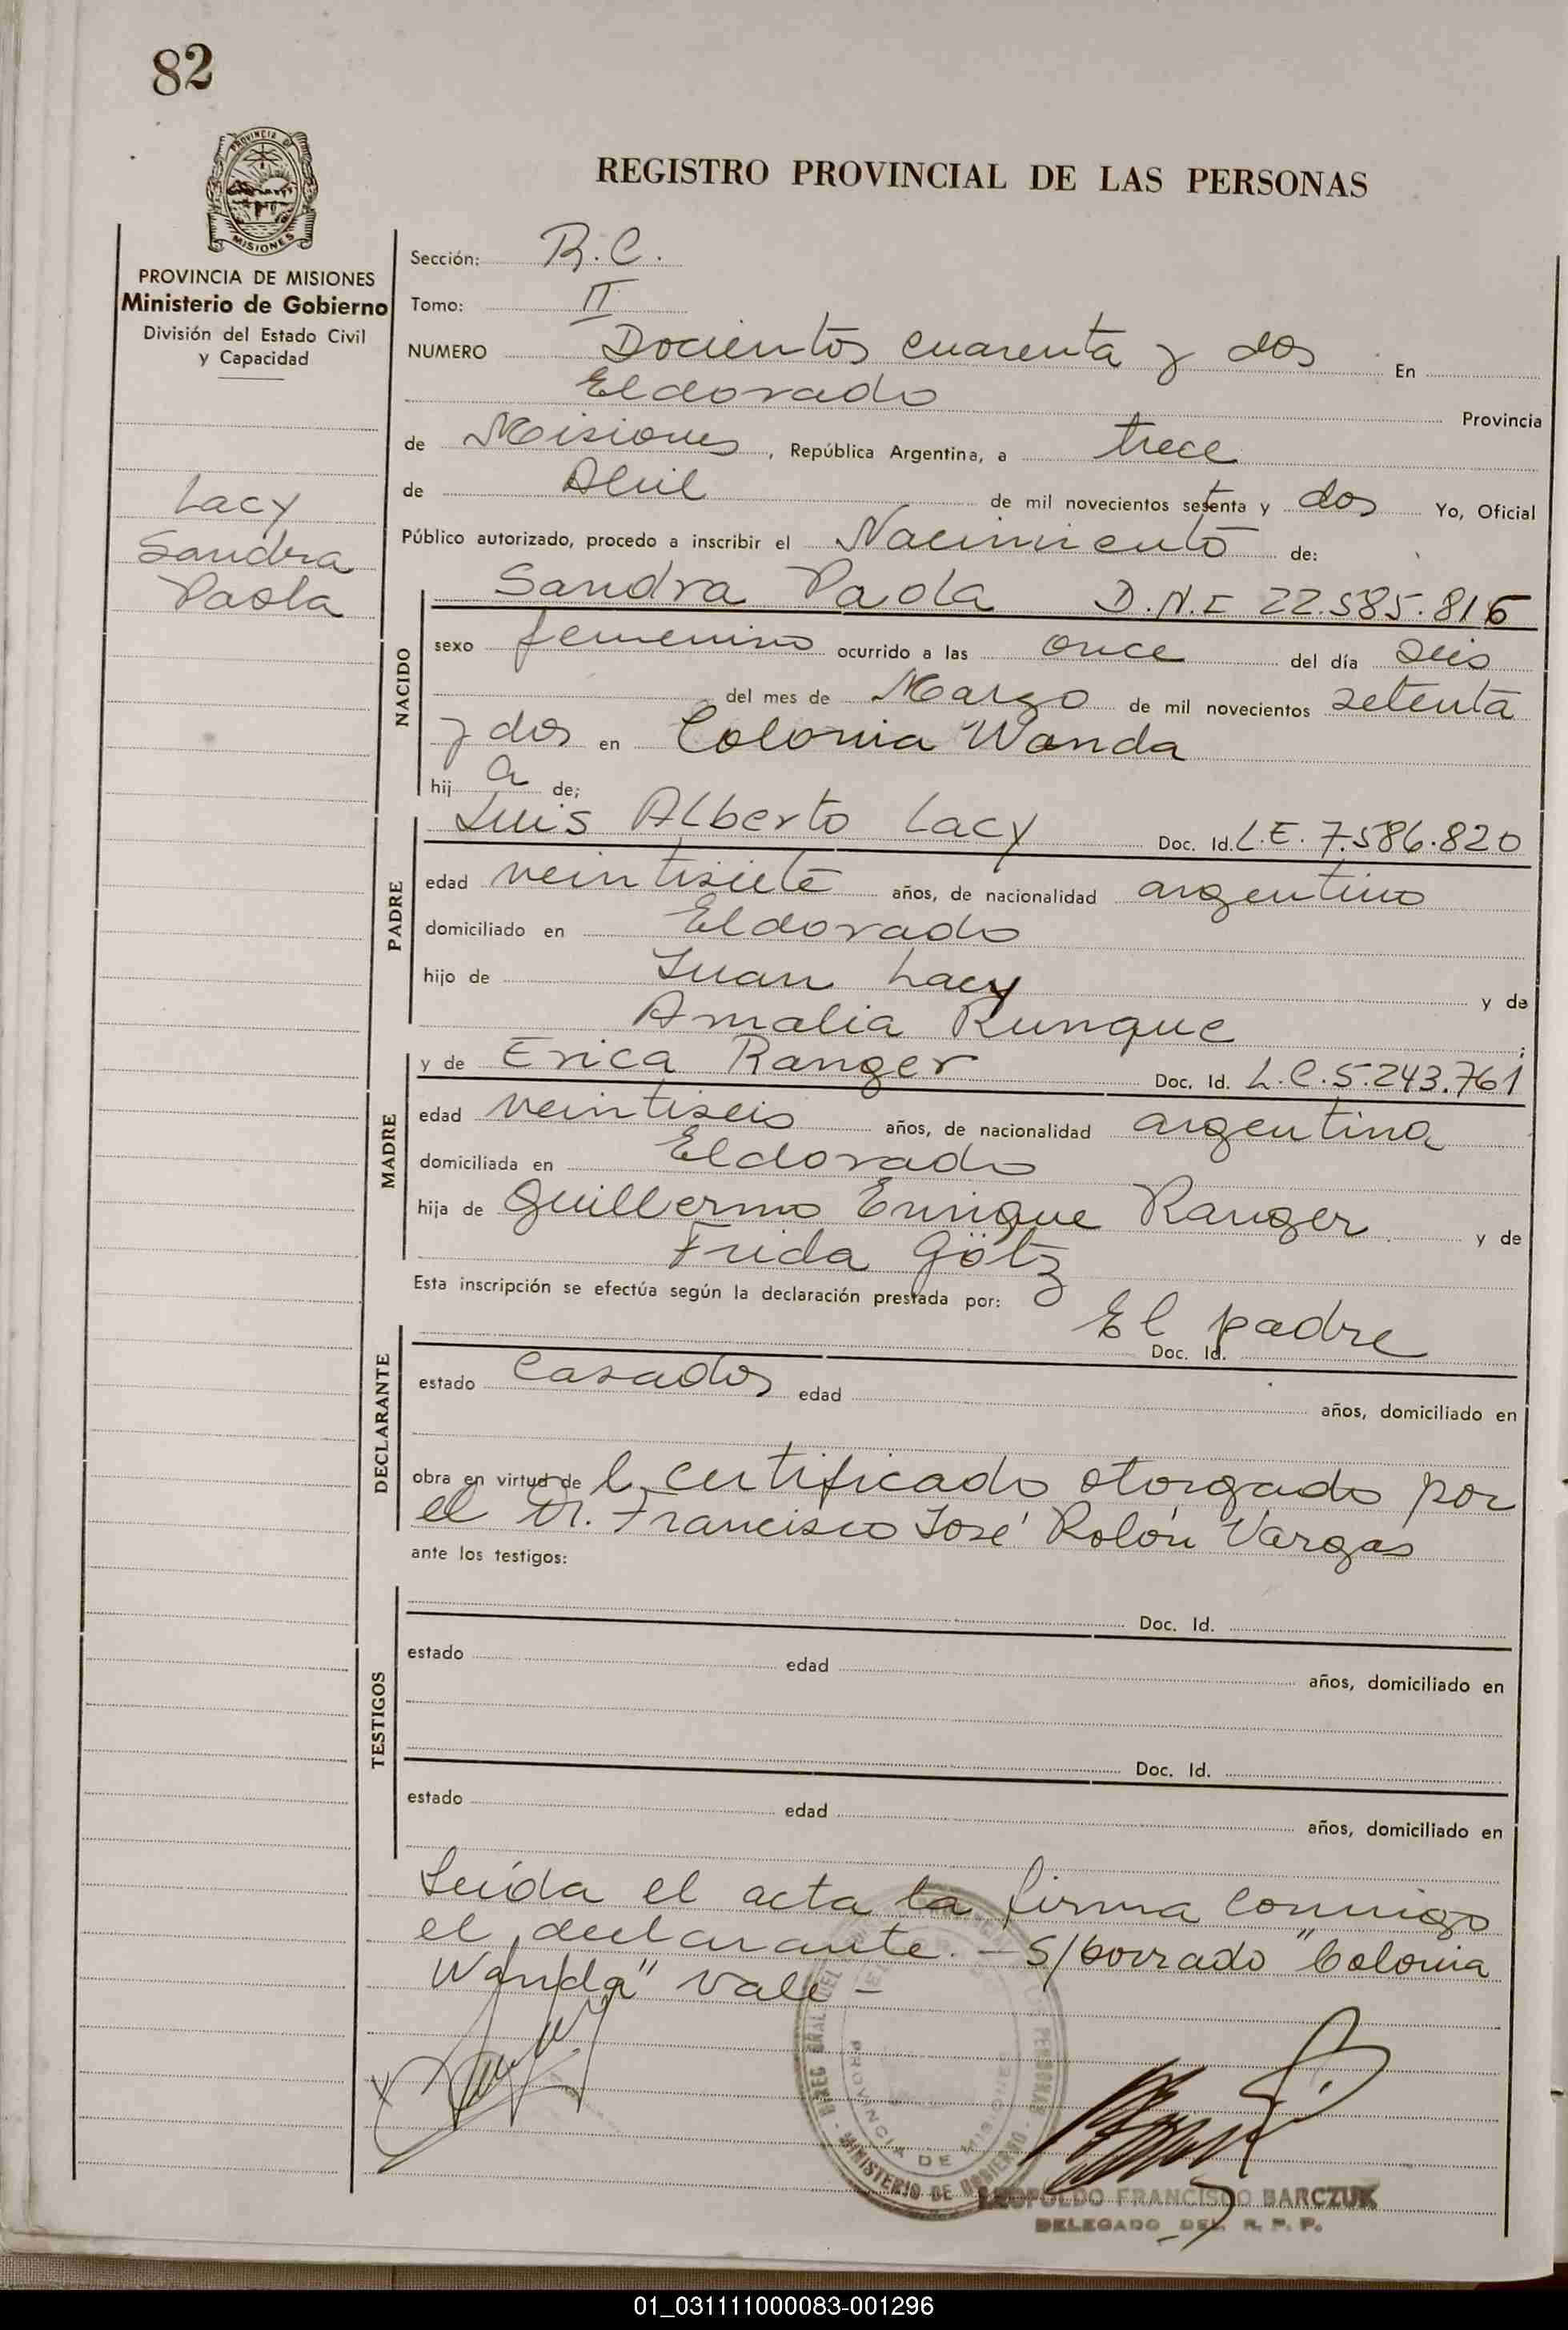 82
PROVINCIA DE
MISIONES
REGISTRO PROVINCIAL DE LAS PERSONAS
PROVINCIA DE MISIONES
Ministerio de Gobierno
División del Estado Civil
y Capacidad
Lacy
Sandra
Paola
Sección: R.C.
Tomo: II
NUMERO Docientos cuarenta y dos En
Eldorado Provincia
de Misiones, República Argentina, a trece
de Abril de mil novecientos setenta y dos Yo, Oficial
Público autorizado, procedo a inscribir el Nacimiento de:
NACIDO
Sandra Paola D.N.I 22.585.816
sexo femenino ocurrido a las once del día seis
del mes de Marzo de mil novecientos setenta
y dos en Colonia Wanda
hija de;
PADRE
Luis Alberto Lacy Doc. Id. L.E. 7.586.820
edad veintisiete años, de nacionalidad argentino
domiciliado en Eldorado
hijo de Juan Lacy y de
Amalia Runque;
MADRE
y de Erica Ranger Doc. Id. L.C. 5.243.761
edad veintiseis años, de nacionalidad argentina
domiciliada en Eldorado
hija de Guillermo Enrique Ranger y de
Frida Götz
Esta inscripción se efectúa según la declaración prestada por:
DECLARANTE
El padre
Doc. Id.
estado casados edad años, domiciliado en
obra en virtud de l certificado otorgado por
el Dr. Francisco José Rolón Vargas
ante los testigos:
TESTIGOS
Doc. Id.
estado edad años, domiciliado en
Doc. Id.
estado edad años, domiciliado en
Leída el acta la firma conmigo
el declarante. - S/borrado "Colonia
Wanda" vale -
PROVINCIA DE MISIONES
MINISTERIO DE GOBIERNO
LEOPOLDO FRANCISCO BARCZUK
DELEGADO DEL R. P. P.
01_031111000083-001296